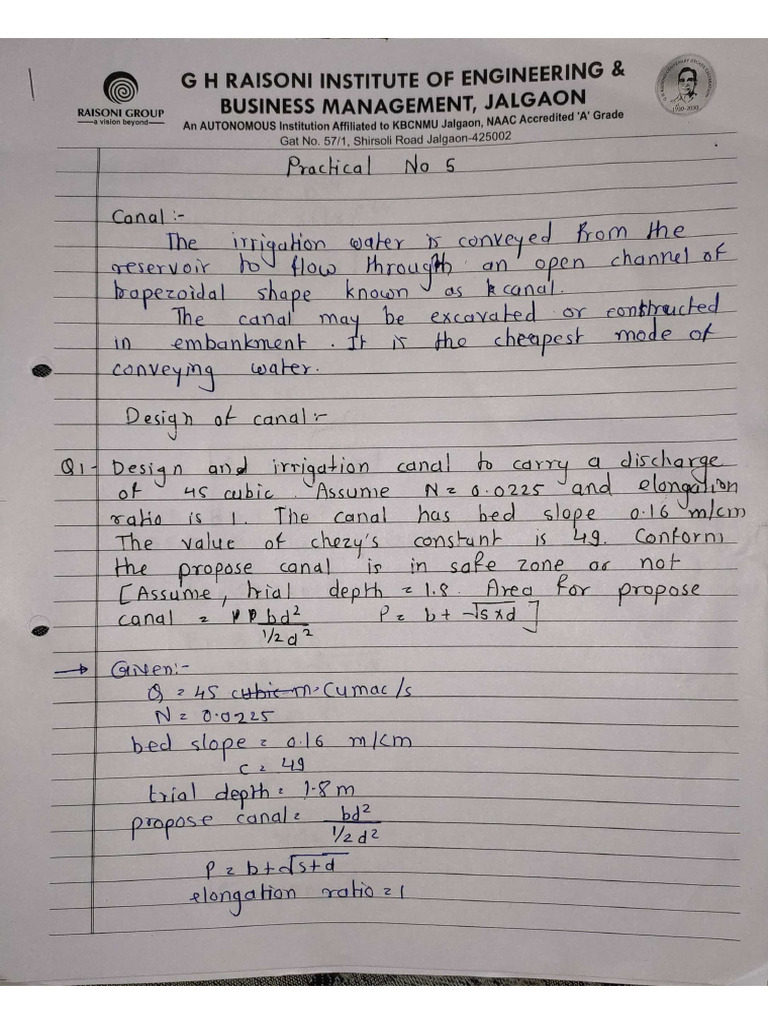 G H RAISONI INSTITUTE OF ENGINEERING &
BUSINESS MANAGEMENT, JALGAON
RAISONI GROUP
a vision beyond
An AUTONOMOUS Institution Affiliated to KBCNMU Jalgaon, NAAC Accredited 'A' Grade
Gat No. 57/1, Shirsoli Road Jalgaon-425002
Practical No 5
Canal :-
The irrigation water is conveyed from the
reservoir to flow through an open channel of
trapezoidal shape known as canal.
The canal may be excavated or constructed
in embankment. It is the cheapest mode of
conveying water.
Design of canal :-
Q1- Design and irrigation canal to carry a discharge
of 45 cubic. Assume N = 0.0225 and elongation
ratio is 1. The canal has bed slope 0.16 m/km
The value of chezy's constant is 49. Conform
the propose canal is in safe zone or not
[Assume, trial depth = 1.8. Area for propose
canal = bd²/1/2d² P = b + √5 x d]
→ Given:-
Q = 45 Cumac/s
N = 0.0225
bed slope = 0.16 m/km
C = 49
trial depth = 1.8 m
propose canal = bd²/1/2d²
P = b + √5+d
elongation ratio = 1